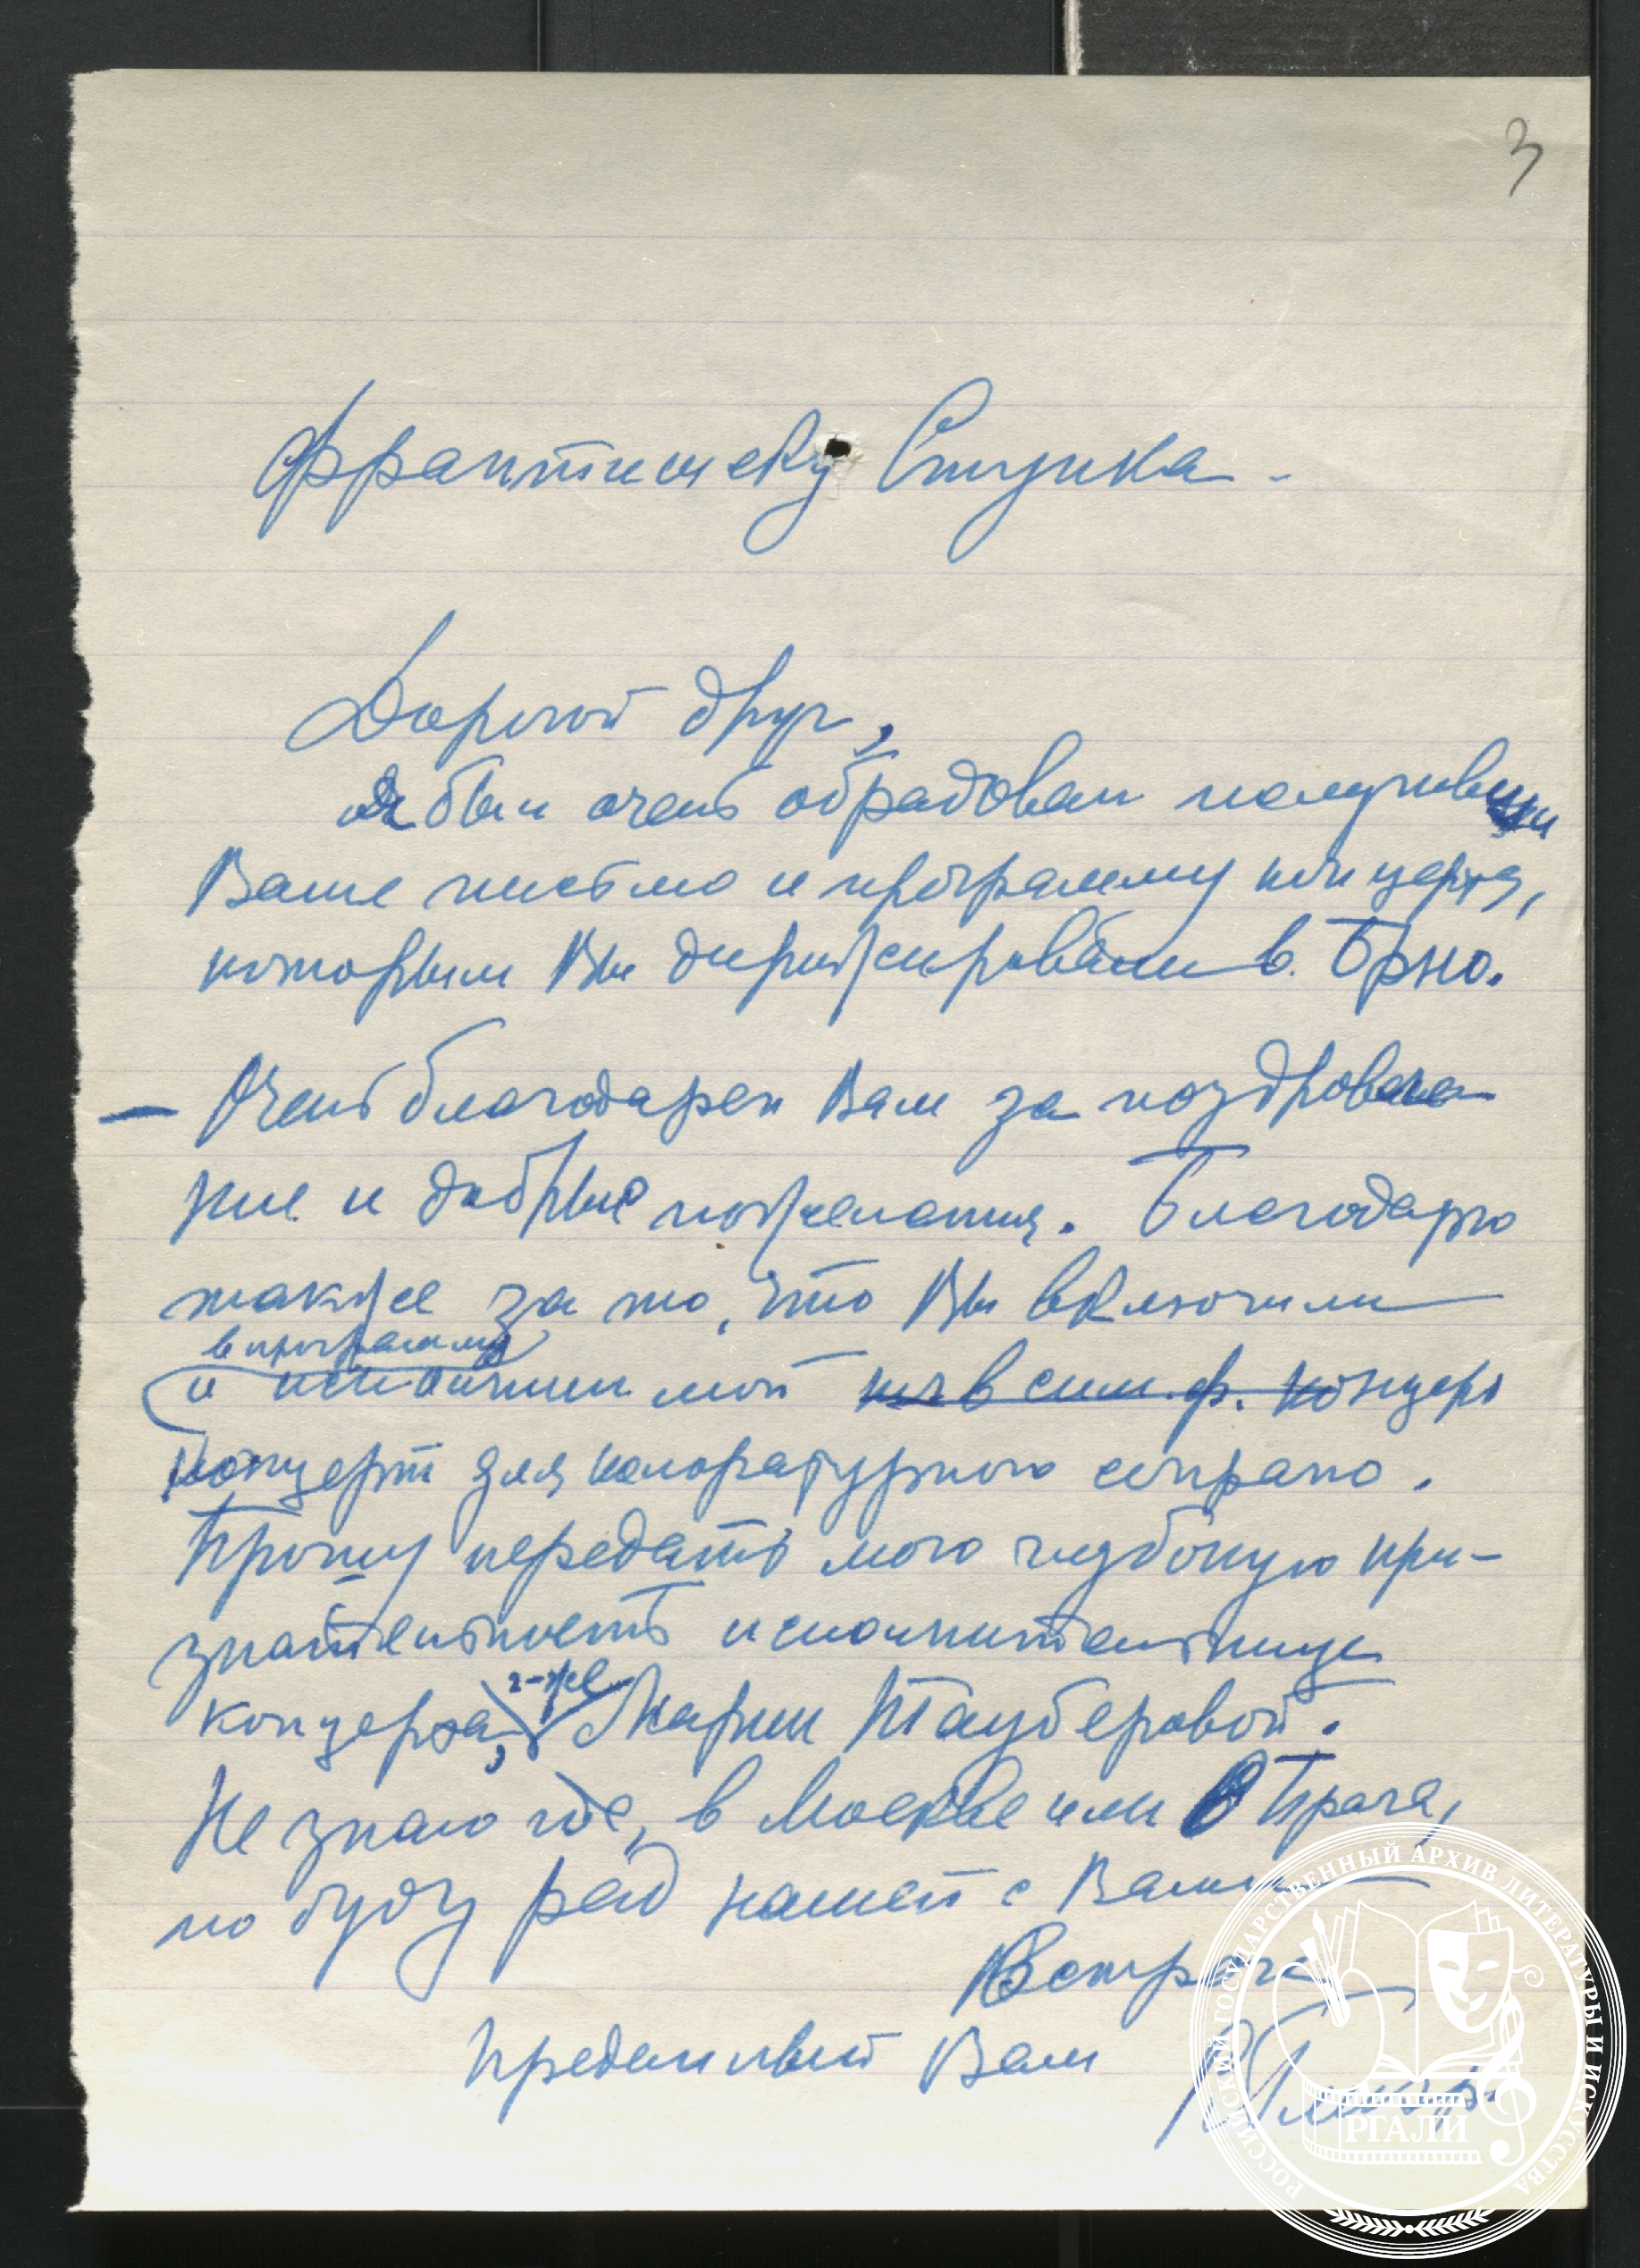 3
Франтишеку Ступка
Дорогой друг,
Я был очень обрадован получивши
Ваше письмо и программу концерта,
которым Вы дирижировали в Брно.
— Очень благодарен Вам за поздравле
ние и добрые пожелания. Благодарю
также за то, что Вы включили
в программу
и исполнили мой в симф. концерт
концерт для колоратурного сопрано.
Прошу передать мою глубокую при-
знательность исполнительнице
г-же
концерта, Марии Тауберовой.
Не знаю где, в Москве или в Праге,
но буду рад нашей с Вами
встрече
Преданный Вам РГлиэр
РОССИЙСКИЙ ГОСУДАРСТВЕННЫЙ АРХИВ ЛИТЕРАТУРЫ И ИСКУССТВА
РГАЛИ